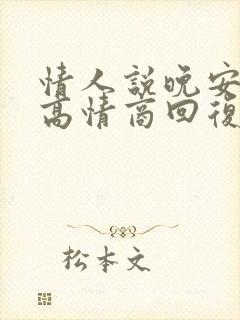 情人説晚安
高情商回復
松本文